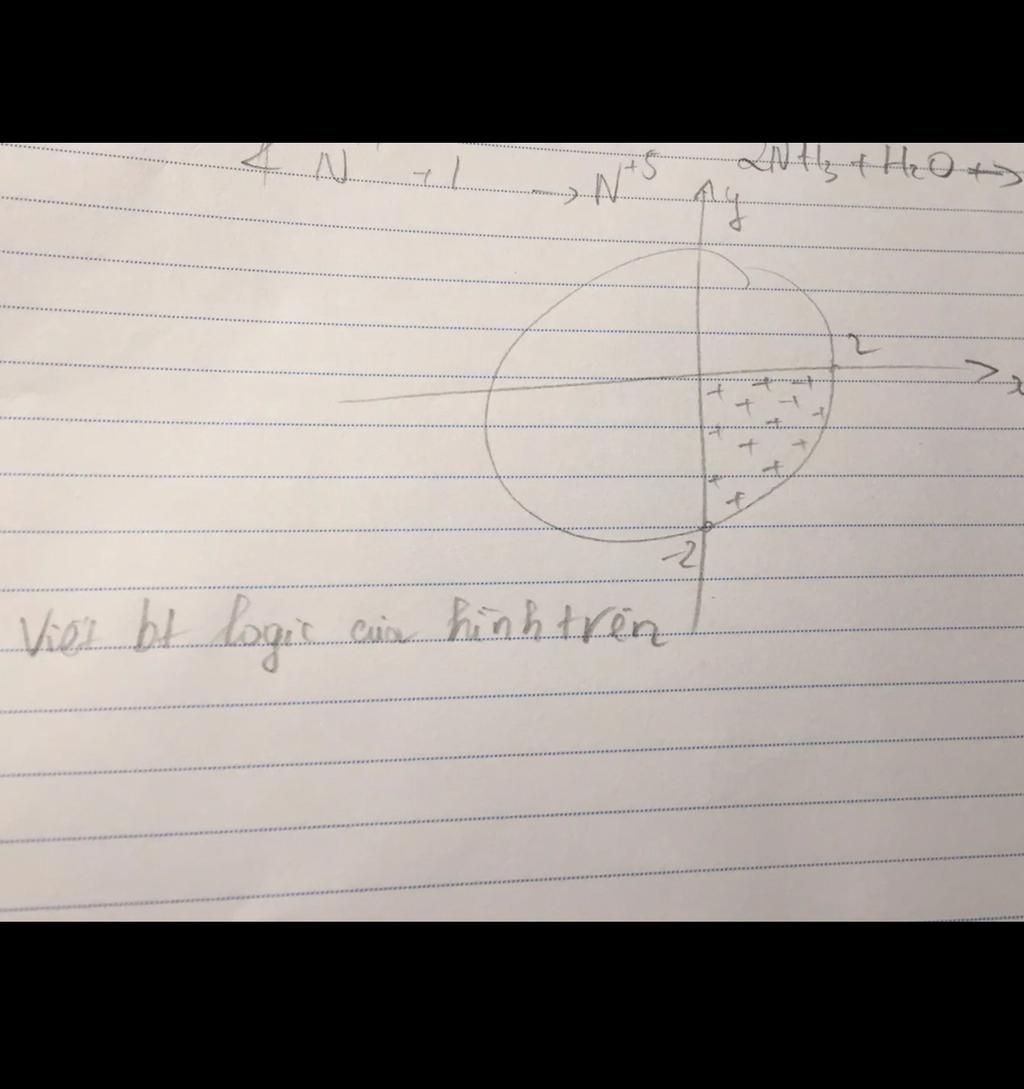 4 N +1 → N+5 2NH3 + H2O →
y
2
x
-2
Viết bt logic của hình trên